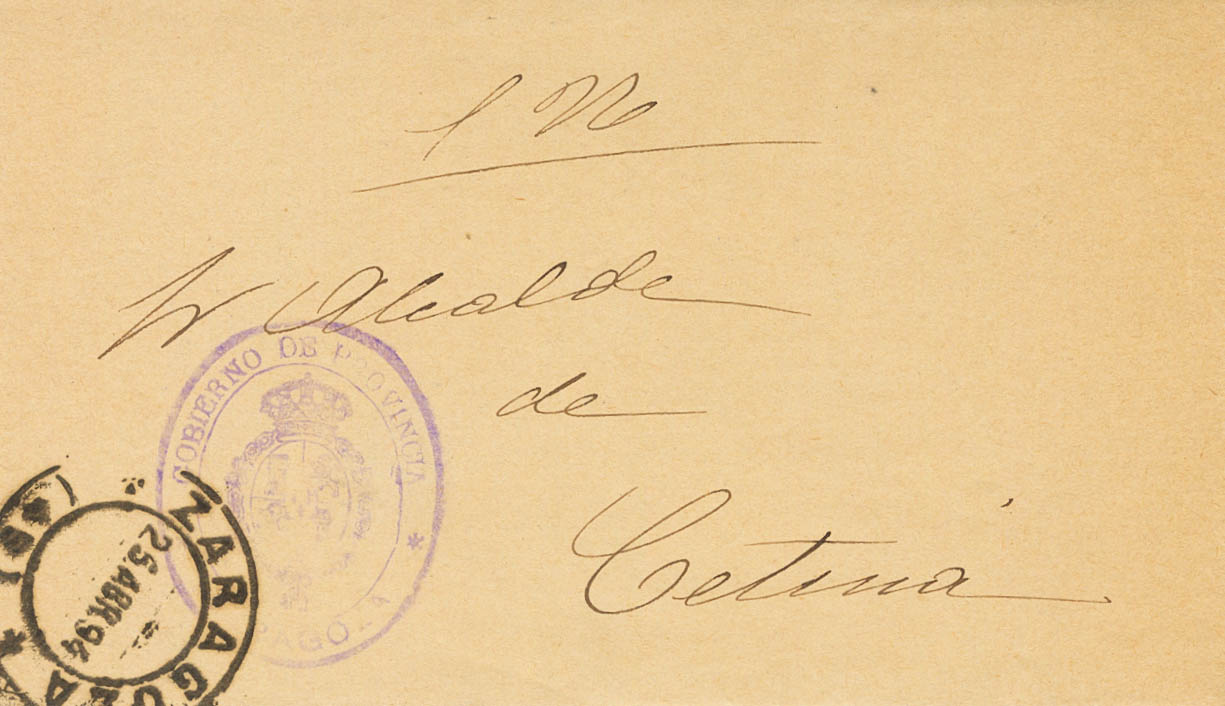 Sr Alcalde
de
Cetina
GOBIERNO DE PROVINCIA *
ZARAGOZA
25 ABR 94